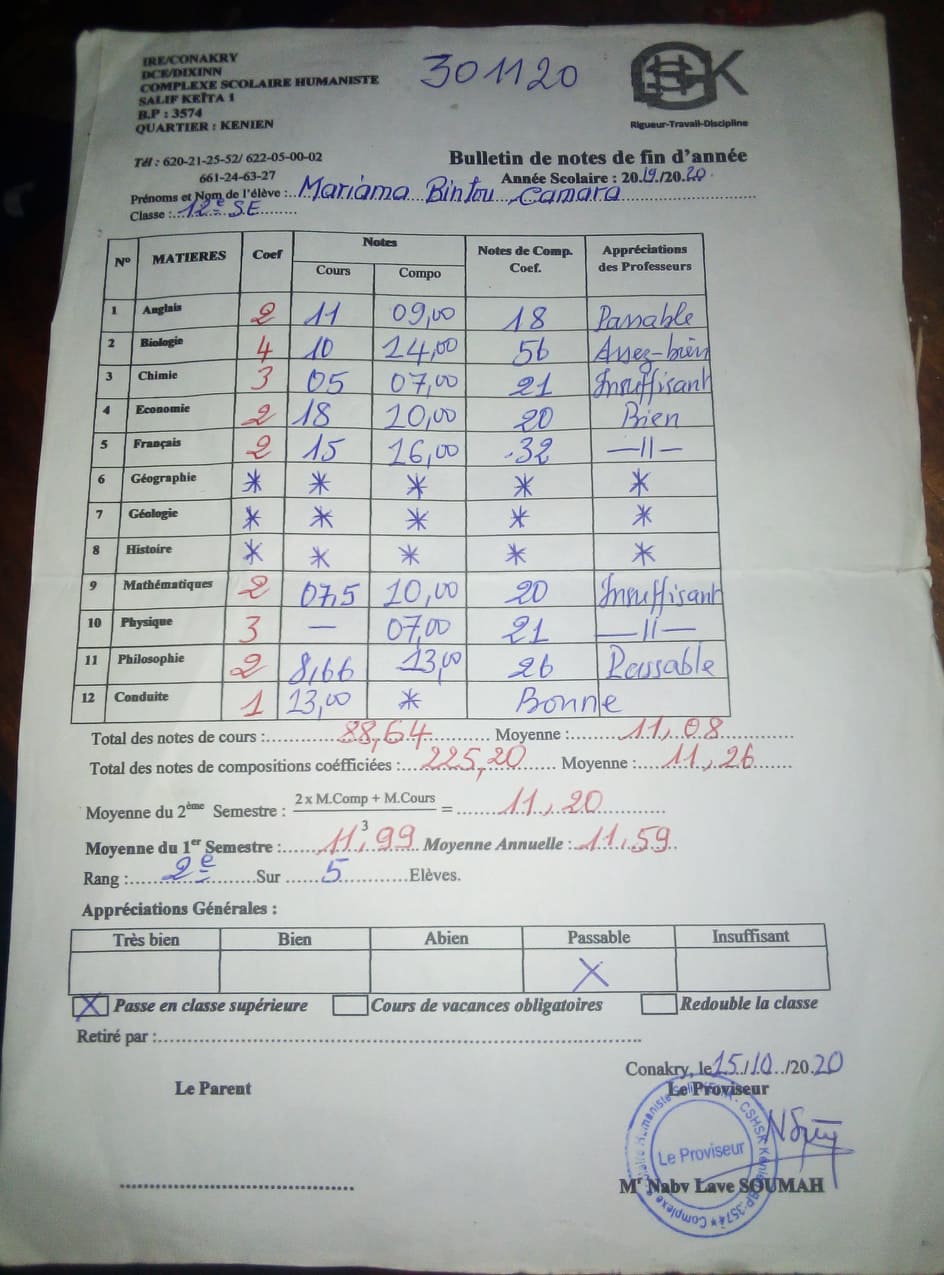 IRE/CONAKRY
DCE/DIXINN
COMPLEXE SCOLAIRE HUMANISTE
SALIF KEÏTA 1
B.P : 3574
QUARTIER : KENIEN
301120
CSHSK
Rigueur-Travail-Discipline
Tél : 620-21-25-52/ 622-05-00-02
661-24-63-27
Bulletin de notes de fin d'année
Année Scolaire : 2019./20.20.
Prénoms et Nom de l'élève :..Mariama Bintou Camara
Classe :..12e SE
N° MATIERES Coef Notes Notes de Comp. Coef. Appréciations des Professeurs
Cours Compo
1 Anglais 2 11 09,00 18 Passable
2 Biologie 4 10 14,00 56 Assez-bien
3 Chimie 3 05 07,00 21 Insuffisant
4 Economie 2 18 10,00 20 Bien
5 Français 2 15 16,00 32 —11—
6 Géographie * * * * *
7 Géologie * * * * *
8 Histoire * * * * *
9 Mathématiques 2 07,5 10,00 20 Insuffisant
10 Physique 3 — 07,00 21 —11—
11 Philosophie 2 8,66 13,00 26 Passable
12 Conduite 1 13,00 * Bonne
Total des notes de cours : 88,64 Moyenne : 11,08
Total des notes de compositions coéfficiées : 225,20 Moyenne : 11,26
Moyenne du 2ème Semestre : 2 x M.Comp + M.Cours = 11,20
3
Moyenne du 1er Semestre : 11,99 Moyenne Annuelle : 11,59
Rang : 2e Sur 5 Elèves.
Appréciations Générales :
Très bien Bien Abien Passable Insuffisant
X
X Passe en classe supérieure Cours de vacances obligatoires Redouble la classe
Retiré par :
Conakry, le 15/10/20.20
Le Parent Le Proviseur
Le Proviseur
Mr Naby Laye SOUMAH